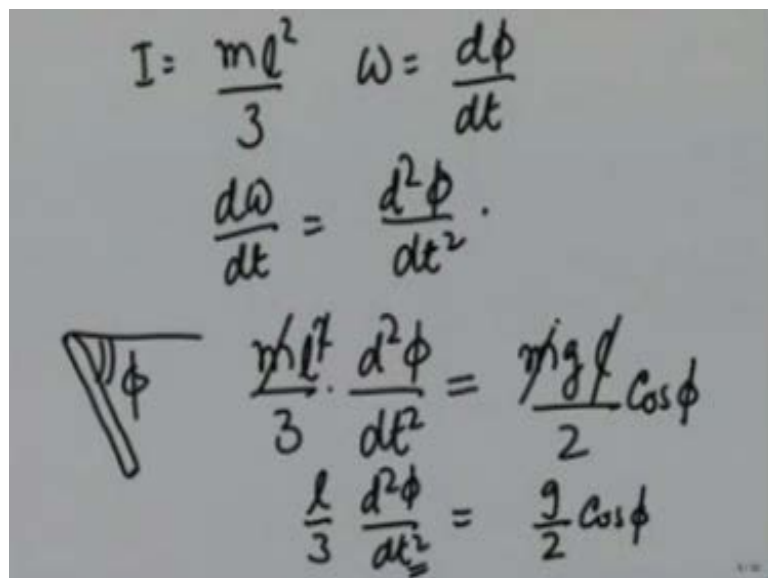 I = ml²/3 ω = dϕ/dt
dω/dt = d²ϕ/dt² .
ϕ
ml²/3 · d²ϕ/dt² = mgl/2 Cosϕ
l/3 d²ϕ/dt² = g/2 Cosϕ